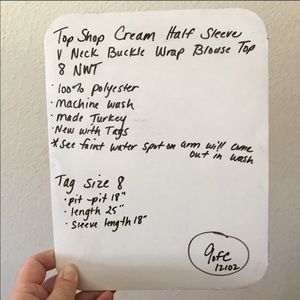 Top Shop Cream Half Sleeve
V Neck Buckle Wrap Blouse Top
8 NWT
· 100% polyester
· Machine wash
· made Turkey
· New with Tags
* See faint water spot on arm will come
out in wash
Tag Size 8
· pit-pit 18"
· length 25"
· Sleeve length 18"
12102